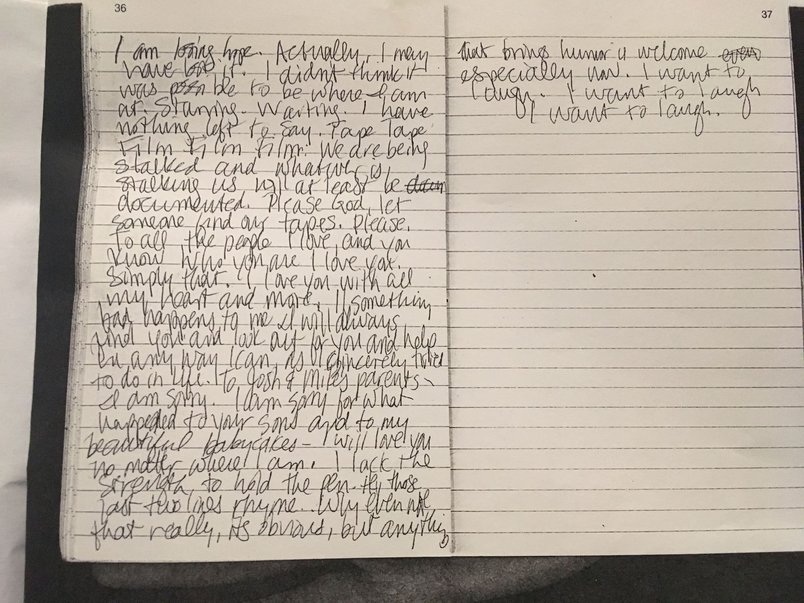 36
I am losing hope. Actually, I may
have lost it. I didn't think it
was possible to be where I am
at. Starving. Waiting. I have
nothing left to say. Tape Tape
Film Film Film. We are being
stalked and whatever is
stalking us, will at least be
documented. Please God, let
someone find our tapes. Please.
To all the people I love, and you
know who you are I love you.
Simply that. I love you with all
my heart and more. If something
bad happens to me I will always
find you and look out for you and help
in any way I can, as I sincerely tried
to do in life. To Josh & Mike's parents -
I am sorry. I am sorry for what
happened to your sons and to my
beautiful babycakes - I will love you
no matter where I am. I lack the
strength to hold the pen. Hey those
last two lines rhyme. Why even note
that really, its obvious, but anything
37
that brings humor is welcome
especially now. I want to
laugh. I want to laugh
I want to laugh.